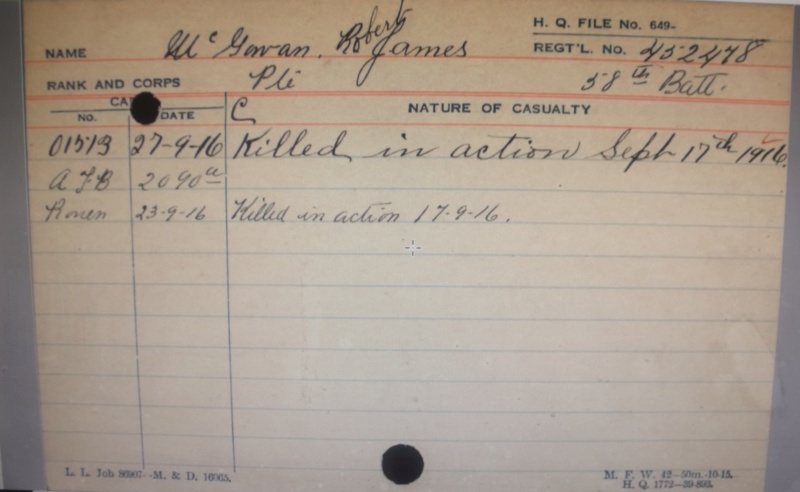 H. Q. FILE No. 649-
NAME Mc Gowan, Robert James REGT'L. No. 452478
RANK AND CORPS Pte 58th Batt.
CA DATE C NATURE OF CASUALTY
No.
01513 27-9-16 Killed in action Sept 17th 1916.
A F B 2090a
Rouen 23-9-16 Killed in action 17-9-16.
L. L. Job 86907- -M. & D. 16065.
M. F. W. 42-50m.-10-15.
H. Q. 1772-39-893.